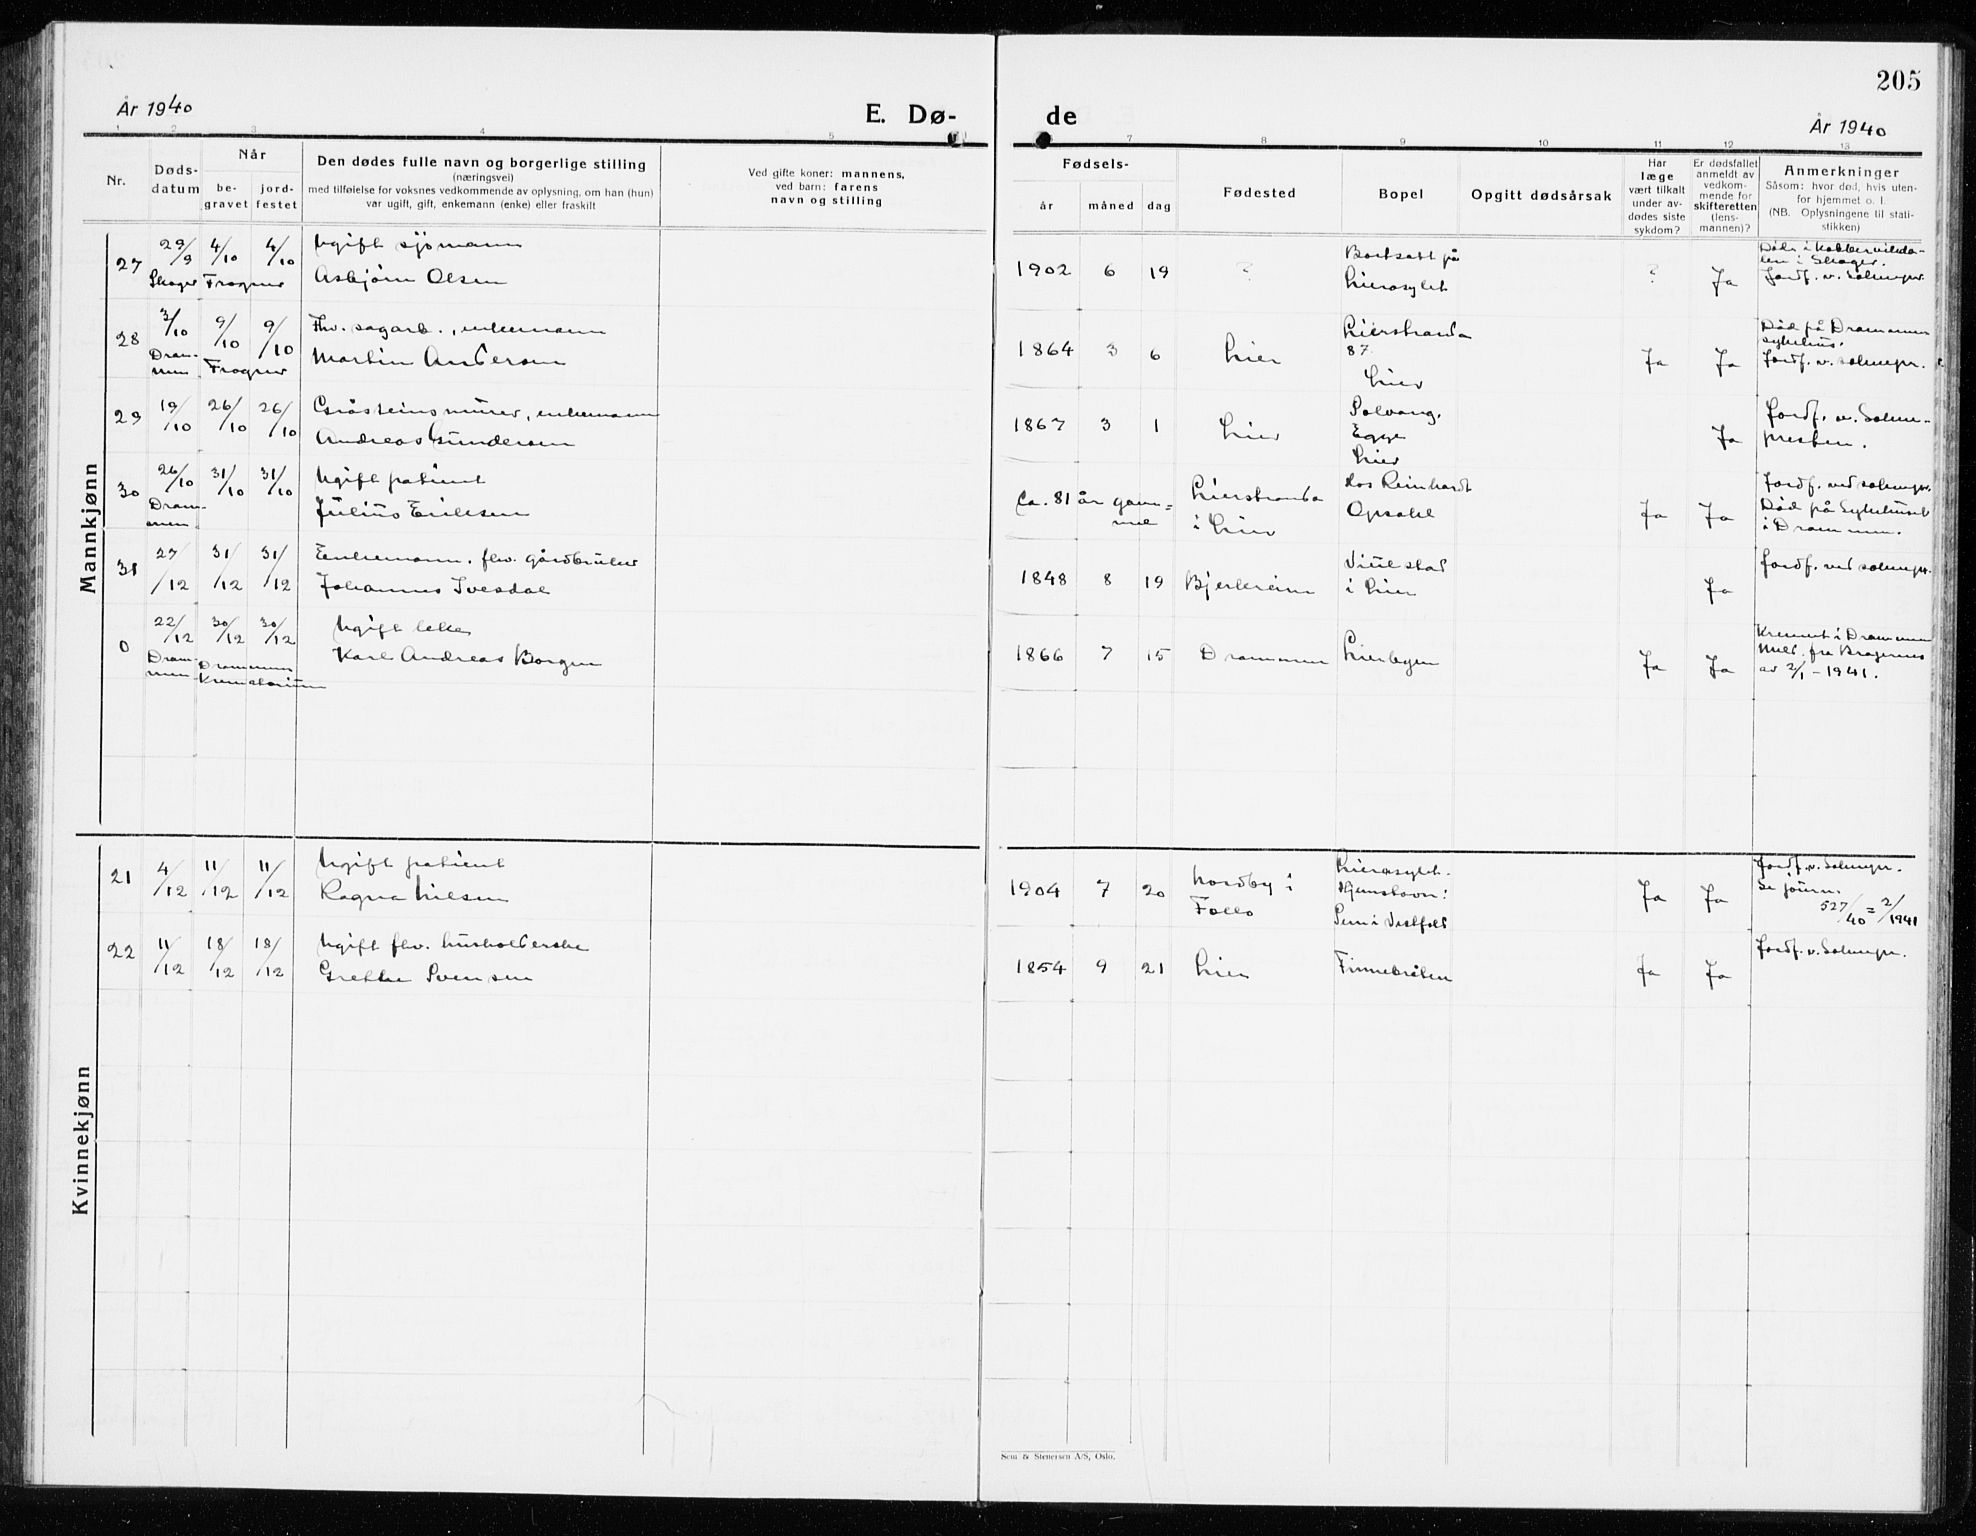 205
År 1940
E. Dø-
de
År 1940
1 2 3 4 5
7 8 9 10 11 12 13
Nr.
Døds-
datum
Når
be-
gravet
jord-
festet
Den dødes fulle navn og borgerlige stilling
(næringsvei)
med tilføielse for voksnes vedkommende av oplysning, om han (hun)
var ugift, gift, enkemann (enke) eller fraskilt
Ved gifte koner: mannens,
ved barn: farens
navn og stilling
Fødsels-
år
måned
dag
Fødested
Bopel
Opgitt dødsårsak
Har
læge
vært tilkalt
under av-
dødes siste
sykdom?
Er dødsfallet
anmeldt av
vedkom-
mende for
skifteretten
(lens-
mannen)?
Anmerkninger
Såsom: hvor død, hvis uten-
for hjemmet o. l.
(NB. Oplysningene til stati-
stikken)
Mannkjønn
27
29/9
Skoger
4/10
4/10
Frogner
Ugift sjømann
Asbjørn Olsen
1902 6 19
?
Bortsatt på
Lierasylet
?
Ja
Død i Kobbervikda-
len i Skoger.
Jordf. v. Soknepr.
28
3/10
Dram-
men
9/10
9/10
Frogner
Fhv. sagarb., enkemann
Martin Anderson
1864 3 6
Lier
Lierstranda
87.
Lier
Ja
Ja
Død på Drammen
sykehus.
Jordf. v. soknepr.
29
19/10
26/10
26/10
Gråsteinsmurer, enkemann
Andreas Gunderson
1867 3 1
Lier
Solvang,
Egge
Lier
Ja
Jordf. v. Sokne-
presten.
30
26/10
Dram-
men
31/10
31/10
Ugift patient
Julius Eriksen
Ca. 81 år gam=
mel
Lierstranda
i Lier
Hos Reinhardt
Opsahl
Ja
Ja
Jordf. ved soknepr.
Død på Sykehuset
i Drammen.
31
27/12
31/12
31/12
Enkemann, fhv. gårdbruker
Johannes Ivesdal
1848 8 19
Bjerkreim
i Lier
Ja
Jordf. ved soknepr.
0
22/12
Dram-
men
30/12
30/12
Drammen
Krematorium
Ugift
Karl Andreas Borgen
1866 7 15
Drammen
Lierbyen
Ja
Ja
Kremert i Drammen
Meld. fra Bragernes
av 2/1 - 1941.
Kvinnekjønn
21
4/12
11/12
11/12
Ugift patient
Ragna Nilsen
1904 7 20
Nordby i
Follo
Lierasylet.
Hjemstavn:
Sem i Vestfold
Ja
Ja
Jordf. v. Soknepr.
Se journ.
527/40 = 2/1941
22
11/12
18/12
18/12
Ugift fhv. husholderske
Grethe Svensen
1854 9 21
Lier
Finnebråten
Ja
Ja
Jordf. v. Soknepr.
Sem & Stenersen A/S, Oslo.